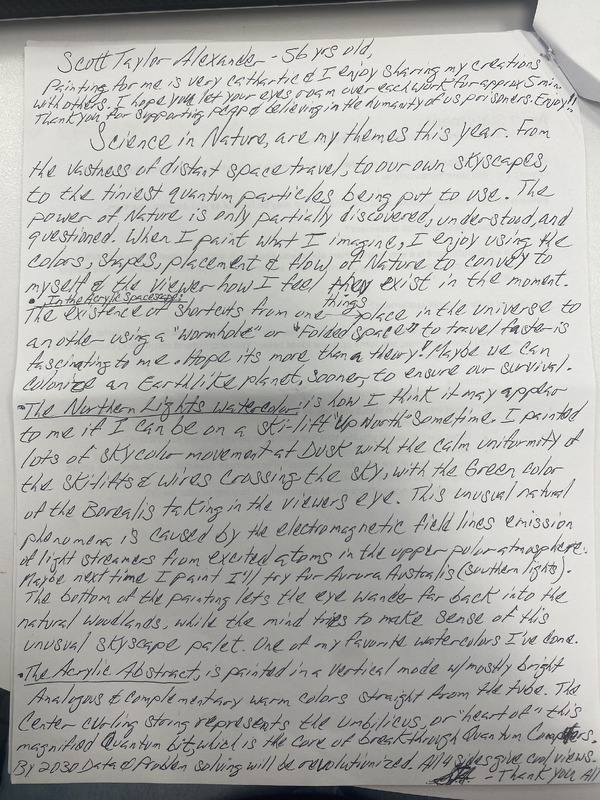 Scott Taylor Alexander - 56 yrs old,
Painting for me is very cathartic & I enjoy sharing my creations
with others. I hope you let your eyes roam over each work for approx 5 min.
Thank you for supporting pcap & believing in the humanity of us prisoners. Enjoy!!
Science in Nature, are my themes this year. From
the vastness of distant space travel, to our own skyscapes,
to the tiniest quantum particles being put to use. The
power of Nature is only partially discovered, understood, and
questioned. When I paint what I imagine, I enjoy using the
colors, shapes, placement & flow of Nature to convey to
myself & the viewer how I feel they exist in the moment.
• In the Acrylic Spacescape:
things
The existence of shortcuts from one place in the universe to
another using a "wormhole" or "Folded space" to travel faster is
fascinating to me. Hope its more than a theory! Maybe we can
colonize an Earthlike planet, sooner, to ensure our survival.
• The Northern Lights watercolor is how I think it may appear
to me if I can be on a ski-lift "Up North" sometime. I painted
lots of sky color movement at Dusk with the calm uniformity of
the ski-lifts & wires crossing the sky, with the Green color
of the Borealis taking in the viewers eye. This unusual natural
phenomena is caused by the electromagnetic field lines emission
of light streamers from excited atoms in the upper polar atmosphere.
Maybe next time I paint I'll try for Aurora Australis (southern lights).
The bottom of the painting lets the eye wander far back into the
natural woodlands, while the mind tries to make sense of this
unusual skyscape palet. One of my favorite watercolors I've done.
• The Acrylic Abstract, is painted in a vertical mode w/mostly bright
Analogous & complementary warm colors straight from the tube. The
Center curling string represents the umbilicus, or "heart of" this
magnified Quantum bit, which is the core of breakthrough Quantum
By 2030 Data & Problem solving will be revolutionized. All 4 sides give cool views.
- Thank you All